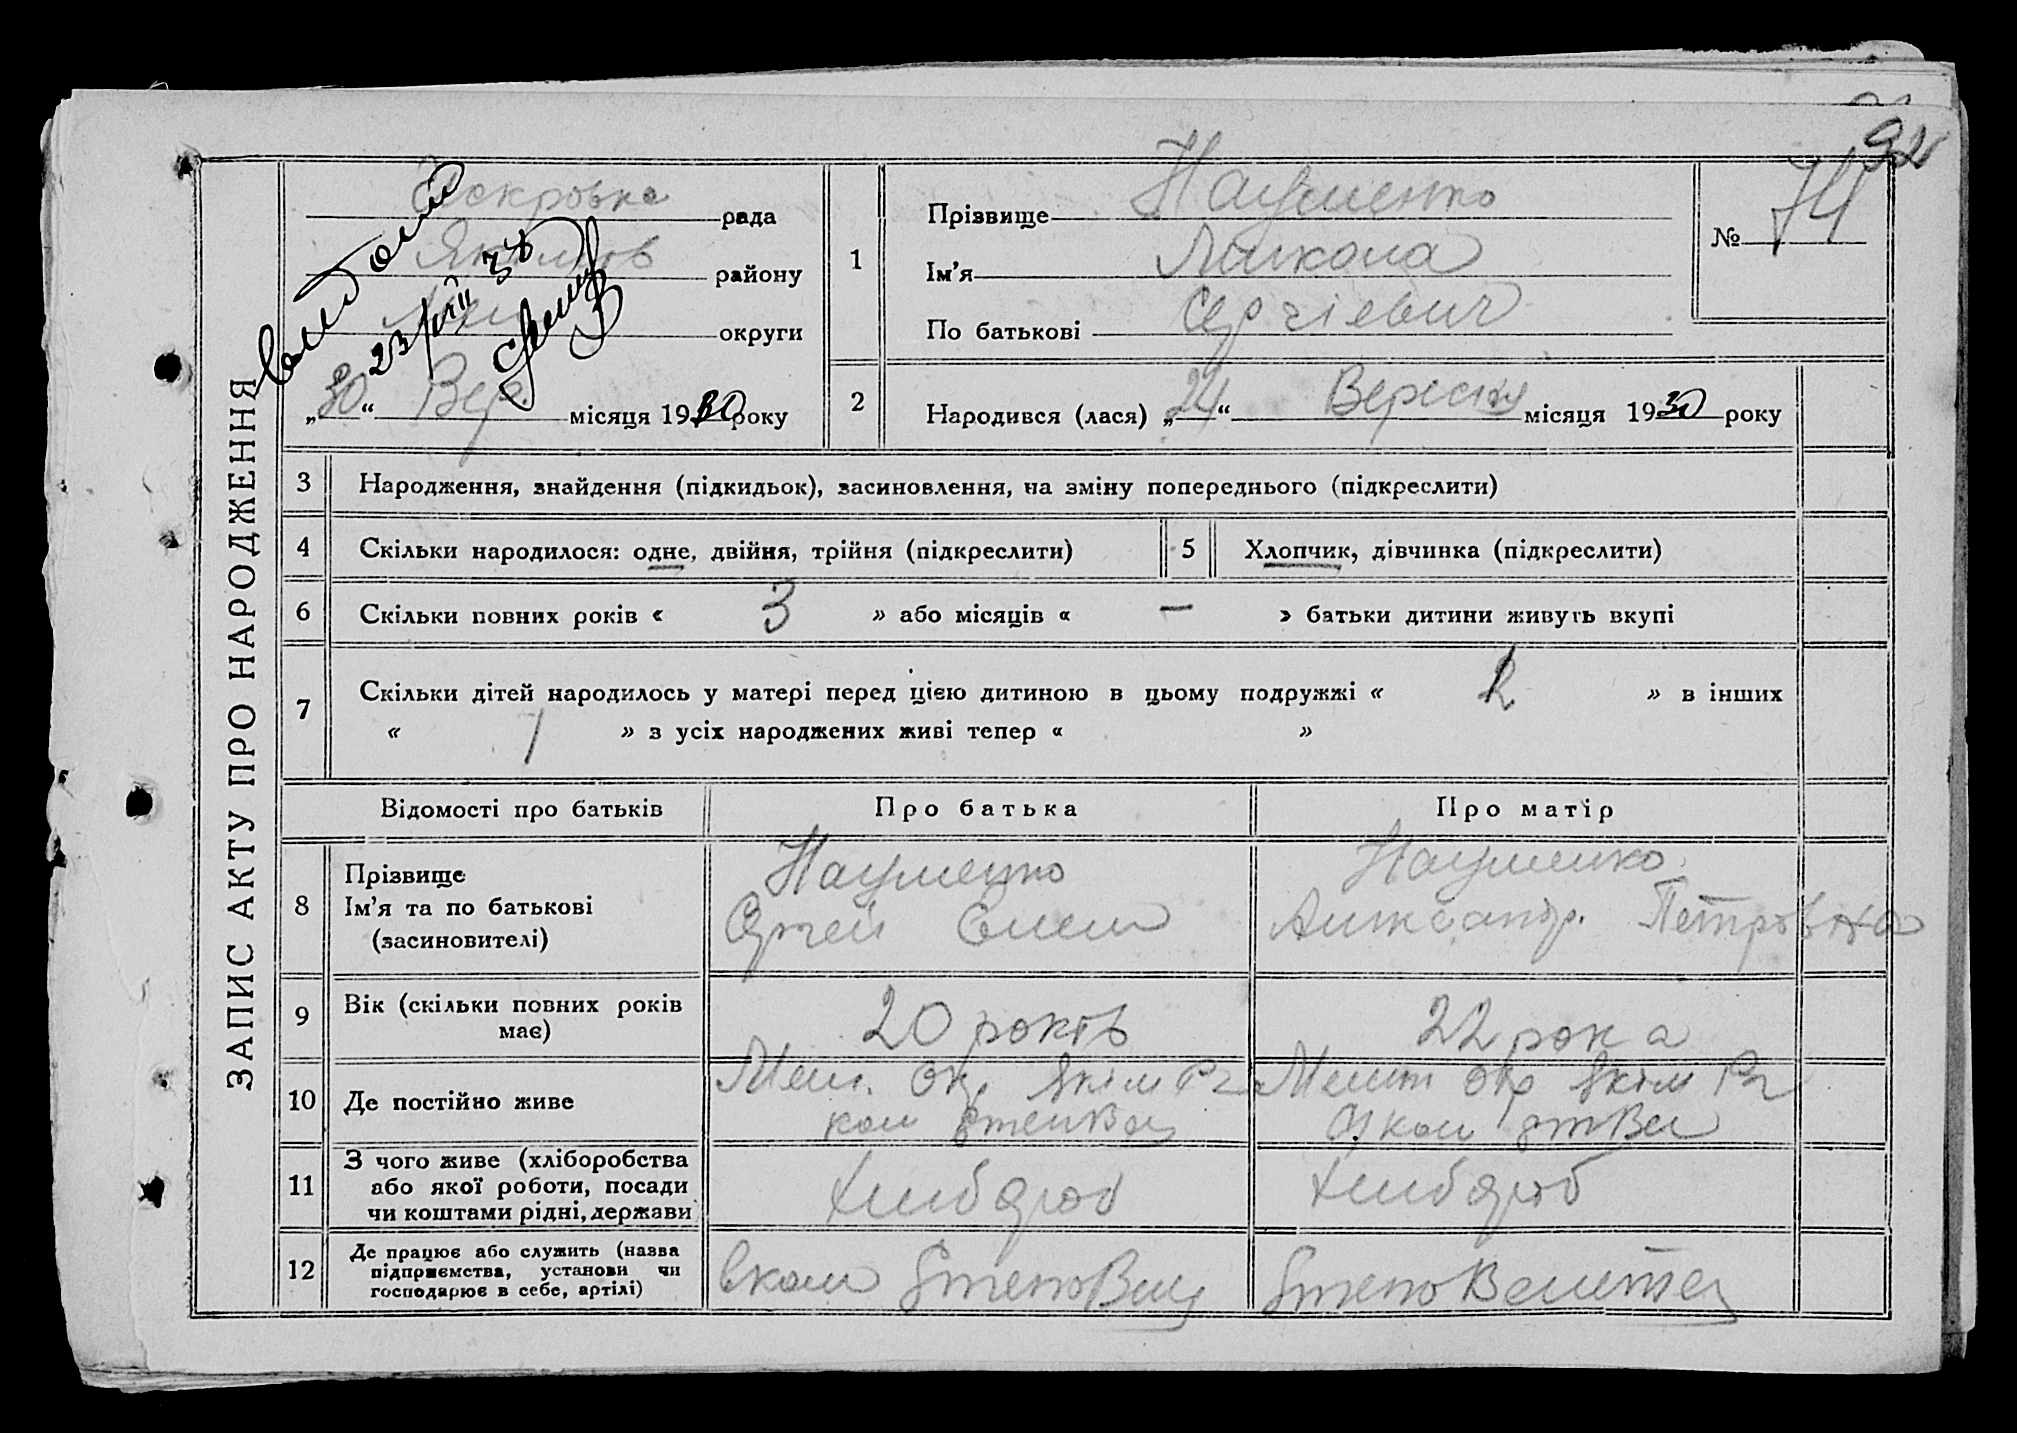 92
ЗАПИС АКТУ ПРО НАРОДЖЕННЯ
рада
району
округи
„30“ Вер. місяця 1930 року
23/VIII 38
1
Прізвище Науменко
Ім’я Микола
По батькові Сергіевич
№ 74
2
Народився (лася) „24“ Вересня місяця 1930 року
3 Народження, знайдення (підкидьок), засиновлення, на зміну попереднього (підкреслити)
4 Скільки народилося: одне, двійня, трійня (підкреслити)
5 Хлопчик, дівчинка (підкреслити)
6 Скільки повних років « 3 » або місяців « — » батьки дитини живуть вкупі
7 Скільки дітей народилось у матері перед цією дитиною в цьому подружжі « » в інших
« 1 » з усіх народжених живі тепер « »
Відомості про батьків
Про батька
Про матір
8
Прізвище
Ім’я та по батькові
(засиновителі)
Науменко
Сергей
Науменко
Александр. Петровна
9
Вік (скільки повних років
має)
20 років
22 рока
10 Де постійно живе
Мел. Ок. Якім Рн
Меліт Окр Якім Рн
11
З чого живе (хліборобства
або якої роботи, посади
чи коштами рідні, держави
хлібороб
хлібороб
12
Де працює або служить (назва
підприємства, установи чи
господарює в себе, артілі)